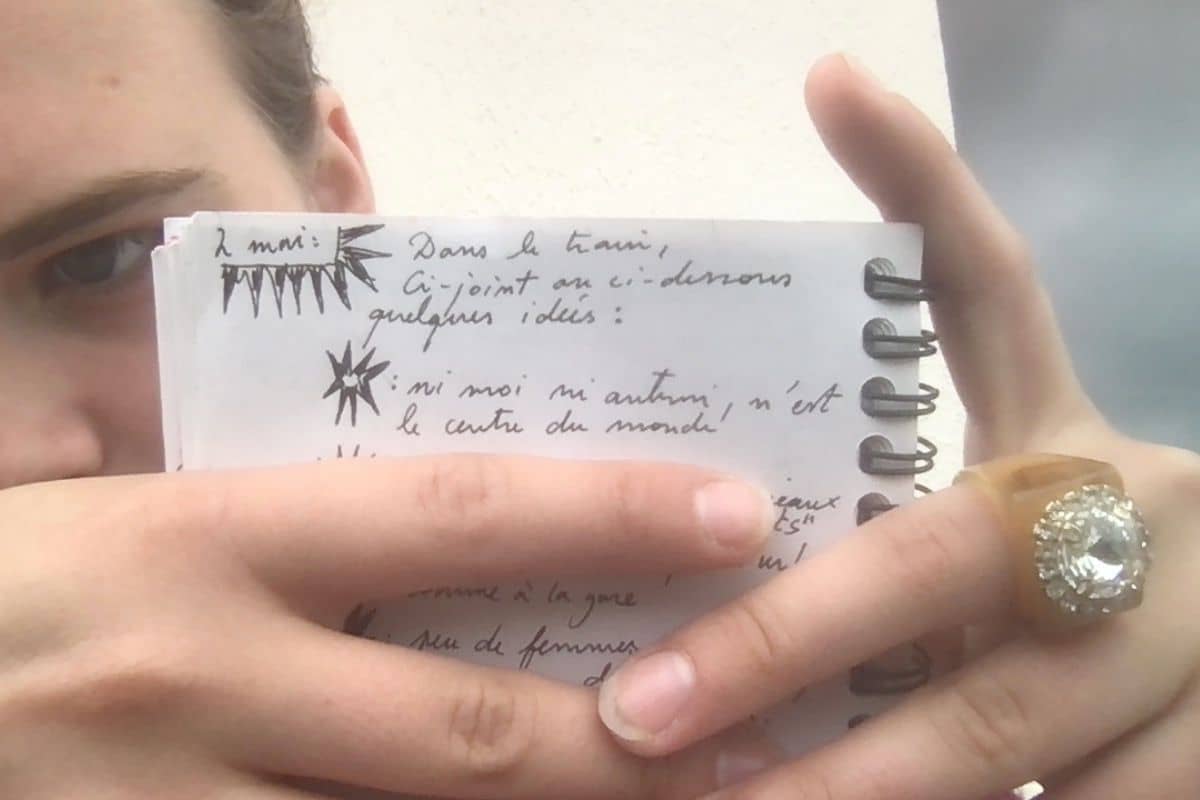 2 mai : Dans le train,
Ci-joint ou ci-dessous
quelques idées :
: ni moi ni autrui, n'est
le centre du monde
à la gare
peu de femmes